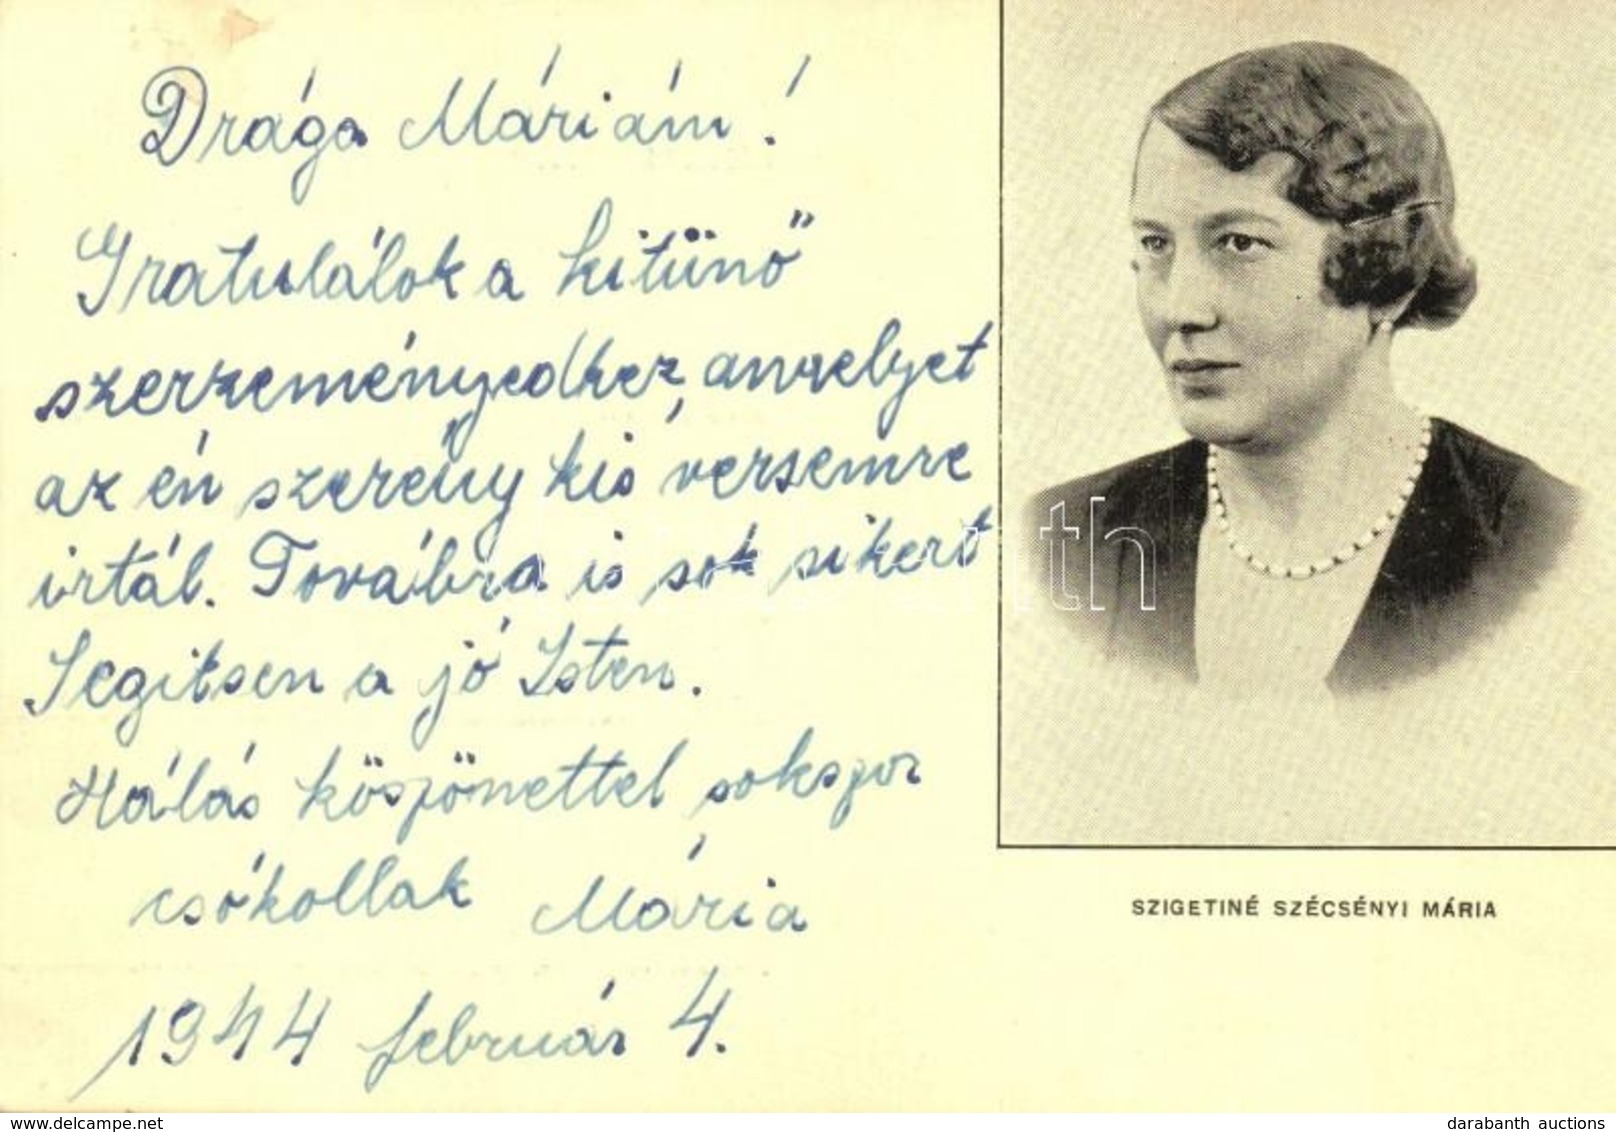 Drága Máriám!
Gratulálok a kitünő
szerzeményedhez, amelyet
az én szerény kis versemre
irtál. Továbbra is sok sikert
Segitsen a jó Isten.
Hálás köszönettel sokszor
csókollak Mária
1944 február 4.
SZIGETINÉ SZÉCSÉNYI MÁRIA
delcampe.net
darabanth auctions